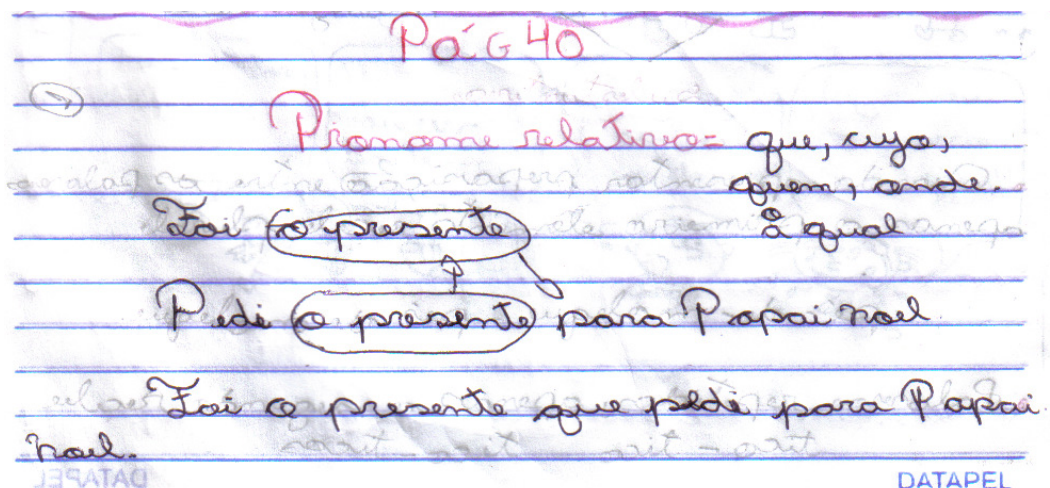 Pág 40
Pronome relativo = que, cujo,
quem, onde.
Foi o presente
o
a qual
Pedi o presente para Papai noel.
Foi o presente que pedi para Papai
noel.
DATAPEL